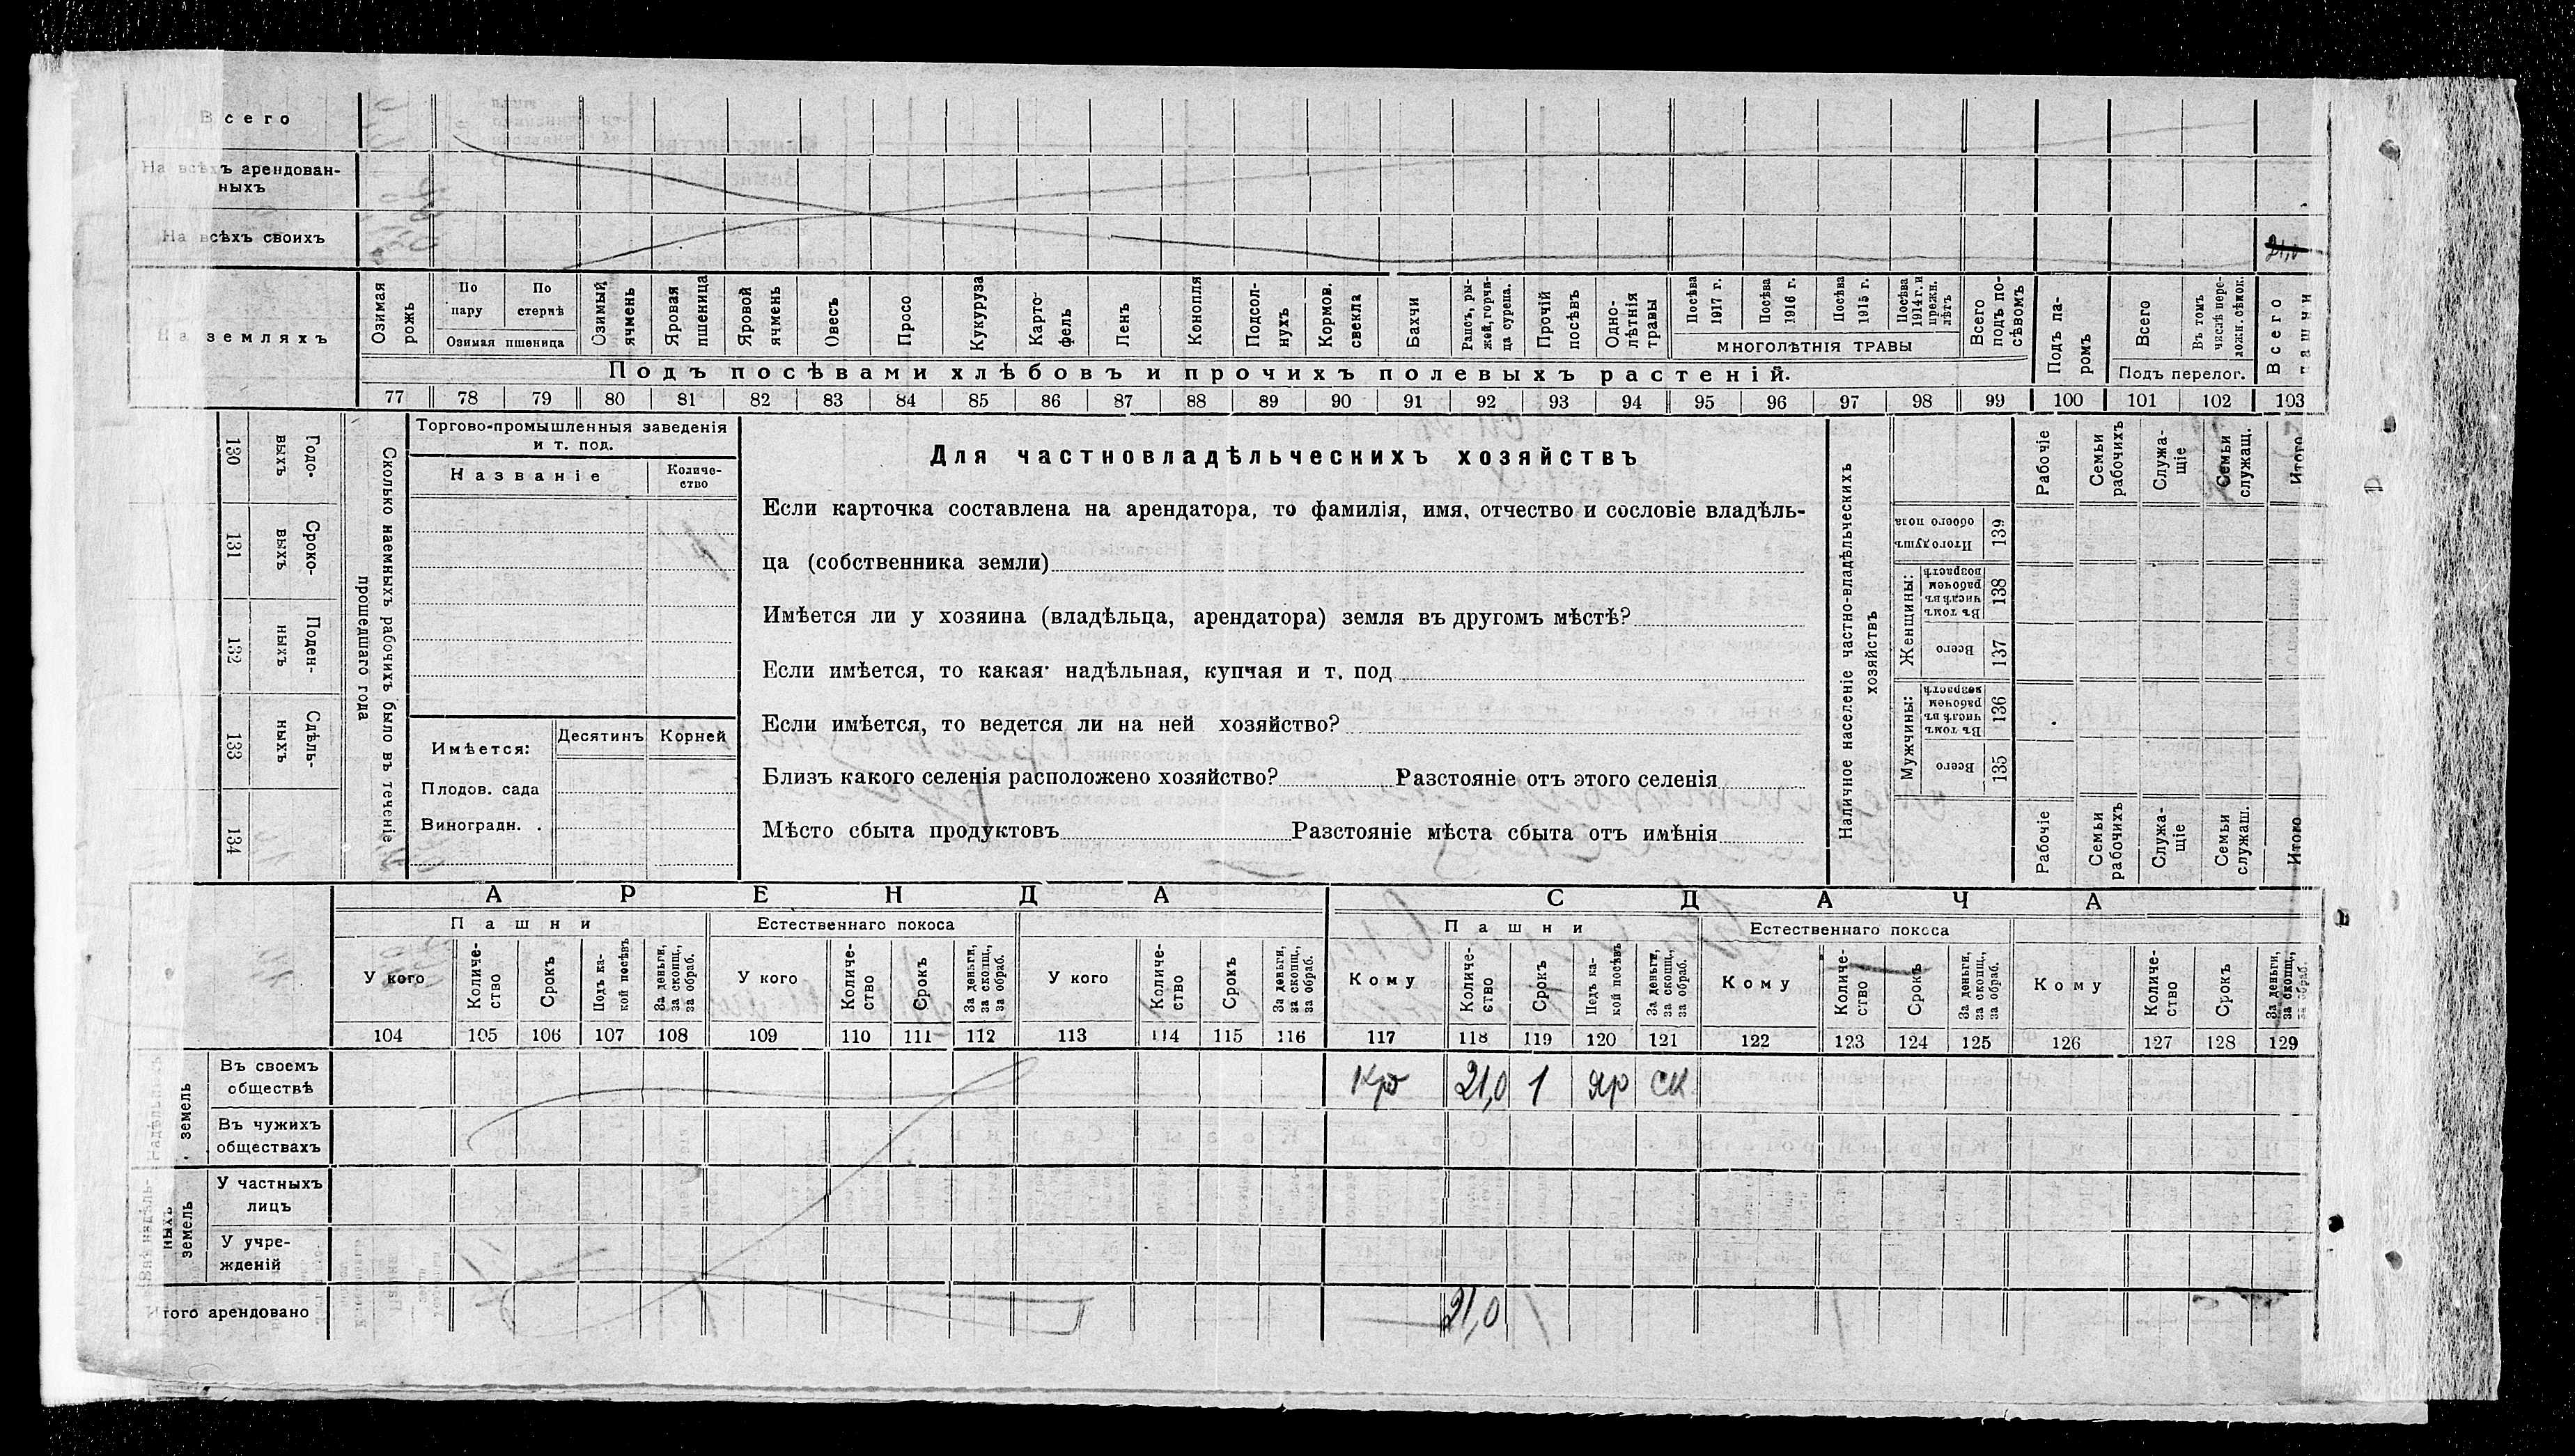 Всего
На всѣхъ арендован-
ныхъ
На всѣхъ своихъ 21,0
На земляхъ
Озимая рожь
По пару
По стернѣ
Озимая пшеница
Озимый ячмень
Яровая пшеница
Яровой ячмень
Овесъ
Просо
Кукуруза
Карто-
фель
Ленъ
Конопля
Подсол-
нухъ
Кормов. свекла
Бахчи
Рапсъ, ры-
жей, горчи-
ца сурепа.
Прочій посѣвъ
Одно-
лѣтнія травы
Посѣва 1917 г.
Посѣва 1916 г.
Посѣва 1915 г.
Посѣва 1914 г. и прежн. лѣтъ
МНОГОЛѢТНІЯ ТРАВЫ
Всего подъ по-
сѣвомъ
Подъ па-
ромъ
Всего
Въ томъ числѣ пере-
ложн. сѣнок.
Подъ перелог.
Всего пашни
Подъ посѣвами хлѣбовъ и прочихъ полевыхъ растеній.
77 78 79 80 81 82 83 84 85 86 87 88 89 90 91 92 93 94 95 96 97 98 99 100 101 102 103
130 Годо-
выхъ
131 Сроко-
выхъ
132 Поден-
ныхъ
133 Сдѣль-
ныхъ
134
Сколько наемныхъ рабочихъ было въ теченіе
прошедшаго года
Торгово-промышленныя заведенія
и т. под.
Названіе
Количе-
ство
Имѣется:
Десятинъ Корней
Плодов. сада
Виноградн. .
Для частновладѣльческихъ хозяйствъ
Если карточка составлена на арендатора, то фамилія, имя, отчество и сословіе владѣль-
ца (собственника земли)
Имѣется ли у хозяина (владѣльца, арендатора) земля въ другомъ мѣстѣ?
Если имѣется, то какая· надѣльная, купчая и т. под
Если имѣется, то ведется ли на ней хозяйство?
Близъ какого селенія расположено хозяйство? Разстояніе отъ этого селенія
Мѣсто сбыта продуктовъ Разстояніе мѣста сбыта отъ имѣнія
Наличное населеніе частно-владѣльческихъ
хозяйствъ
Рабочіе
Семьи рабочихъ
Служа-
щіе
Семьи служащ.
Итого
Итого душъ обоего пола 139
Женщины:
Въ томъ числѣ въ рабочемъ возрастѣ 138
Всего 137
Мужчины:
Въ томъ числѣ въ рабочемъ возрастѣ 136
Всего 135
Рабочіе
Семьи рабочихъ
Служа-
щіе
Семьи служащ.
Итого
АРЕНДА СДАЧА
Пашни Естественнаго покоса Пашни Естественнаго покоса
У кого
Количе-
ство
Срокъ
Подъ ка-
кой посѣвъ
За деньги, за скопщ., за обраб.
У кого
Количе-
ство
Срокъ
За деньги, за скопщ., за обраб.
У кого
Количе-
ство
Срокъ
За деньги, за скопщ., за обраб.
Кому
Количе-
ство
Срокъ
Подъ ка-
кой посѣвъ
За деньги, за скопщ., за обраб.
Кому
Количе-
ство
Срокъ
За деньги, за скопщ., за обраб.
Кому
Количе-
ство
Срокъ
За деньги, за скопщ., за обраб.
104 105 106 107 108 109 110 111 112 113 114 115 116 117 118 119 120 121 122 123 124 125 126 127 128 129
Надѣльныхъ земель
Въ своемъ
обществѣ
Кр 21,0 1 яр ск
Въ чужихъ
обществахъ
Внѣ надѣль-
ныхъ земель
У частныхъ
лицъ
У учре-
жденій
Итого арендовано 21,0